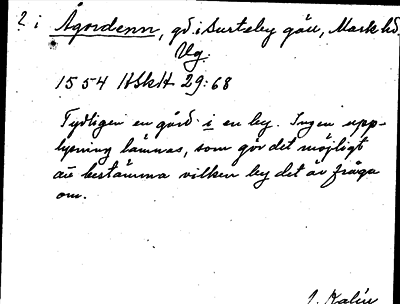 ? i Ågordenn, gd i Surteby gäll, Mark hd,
Vg.
1554 HSkH 29:68
Tydligen en gård i en by. Ingen upp-
lysning lämnas, som gör det möjligt
att bestämma vilken by det är fråga
om.